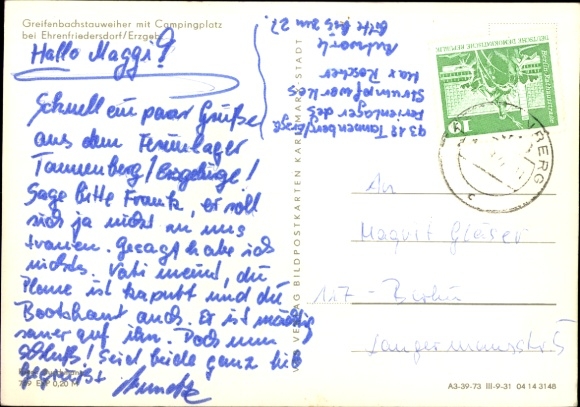 Greifenbachstauweiher mit Campingplatz
bei Ehrenfriedersdorf/Erzgeb.
Hallo Maggi!
Schnell ein paar Grüße
aus dem Ferienlager
Tannenberg/Erzgebirge!
Sage bitte Frank, er soll
sich ja nicht zu uns
trauen. Gesagt habe ich
nichts. Vati meint, die
Plane ist kaputt und die
Bootshaut auch. Er ist mächtig
sauer auf ihn. Doch nun
Schluß! Seid beide ganz lieb
gegrüßt
9312 Tannenberg/Erzgb
Ferienlager des
Strumpfwerkes
Max Roscher
Antwort
bitte bis zum 27.
VERLAG BILDPOSTKARTEN KARL-MARX-STADT
DEUTSCHE DEMOKRATISCHE REPUBLIK
10
BERG
An
Magrit Gläser
117 - Berlin
Langermannstr 5
A3-39-73 III-9-31 04 14 3148